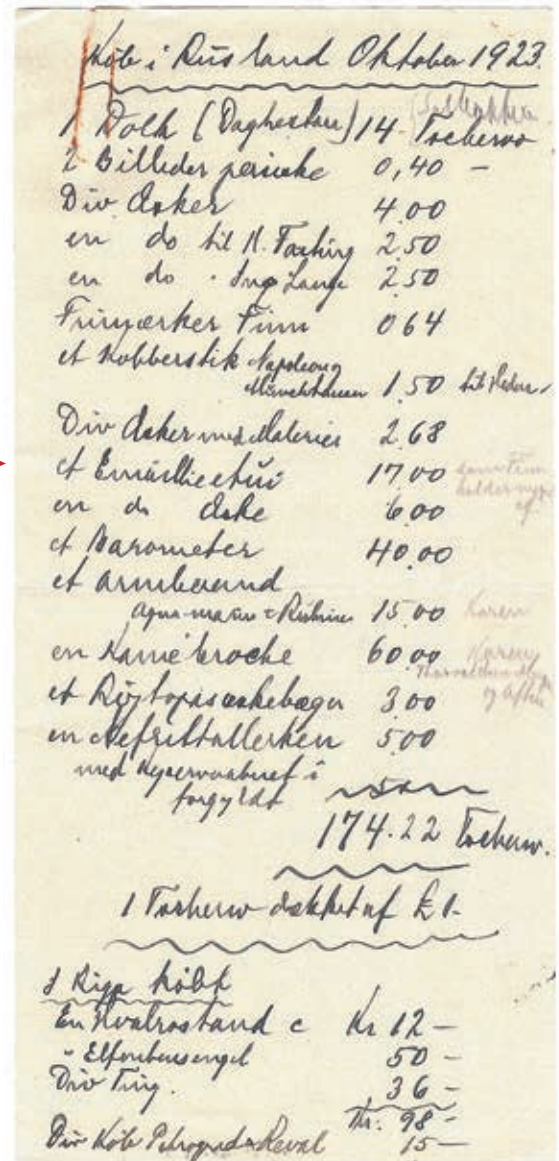 Køb i Rusland Oktober 1923.
1 Dolk (Daghestan) 14 - Tscherw
2 Billeder persiske 0,40 -
Div Æsker 4.00
en do til N. 2.50
en do " Lange 2.50
Frimærker Finn 0 64
et Kobberstik Napoleon
1.50 til
Div Æsker med Malerier 2.68
et Emailleetui 17.00 som Finn
en do Æske 6.00
et Barometer 40.00
et Armbaand
Aqua-marin & Rubiner 15.00 Karen
en Kamé broche 60.00 Karen
et Røgtopasæskebæger 3.00
en Nefrittallerken 5.00
med i
forgyldt
174.22 Tscherw.
1 Tscherw dækket af £ 1-
I Riga købt
En Hvalrostand c Kr 12 -
" Elfenbensengel 50 -
Div Ting. 36 -
Kr. 98 -
Div Køb Petrograd & Reval 15 -